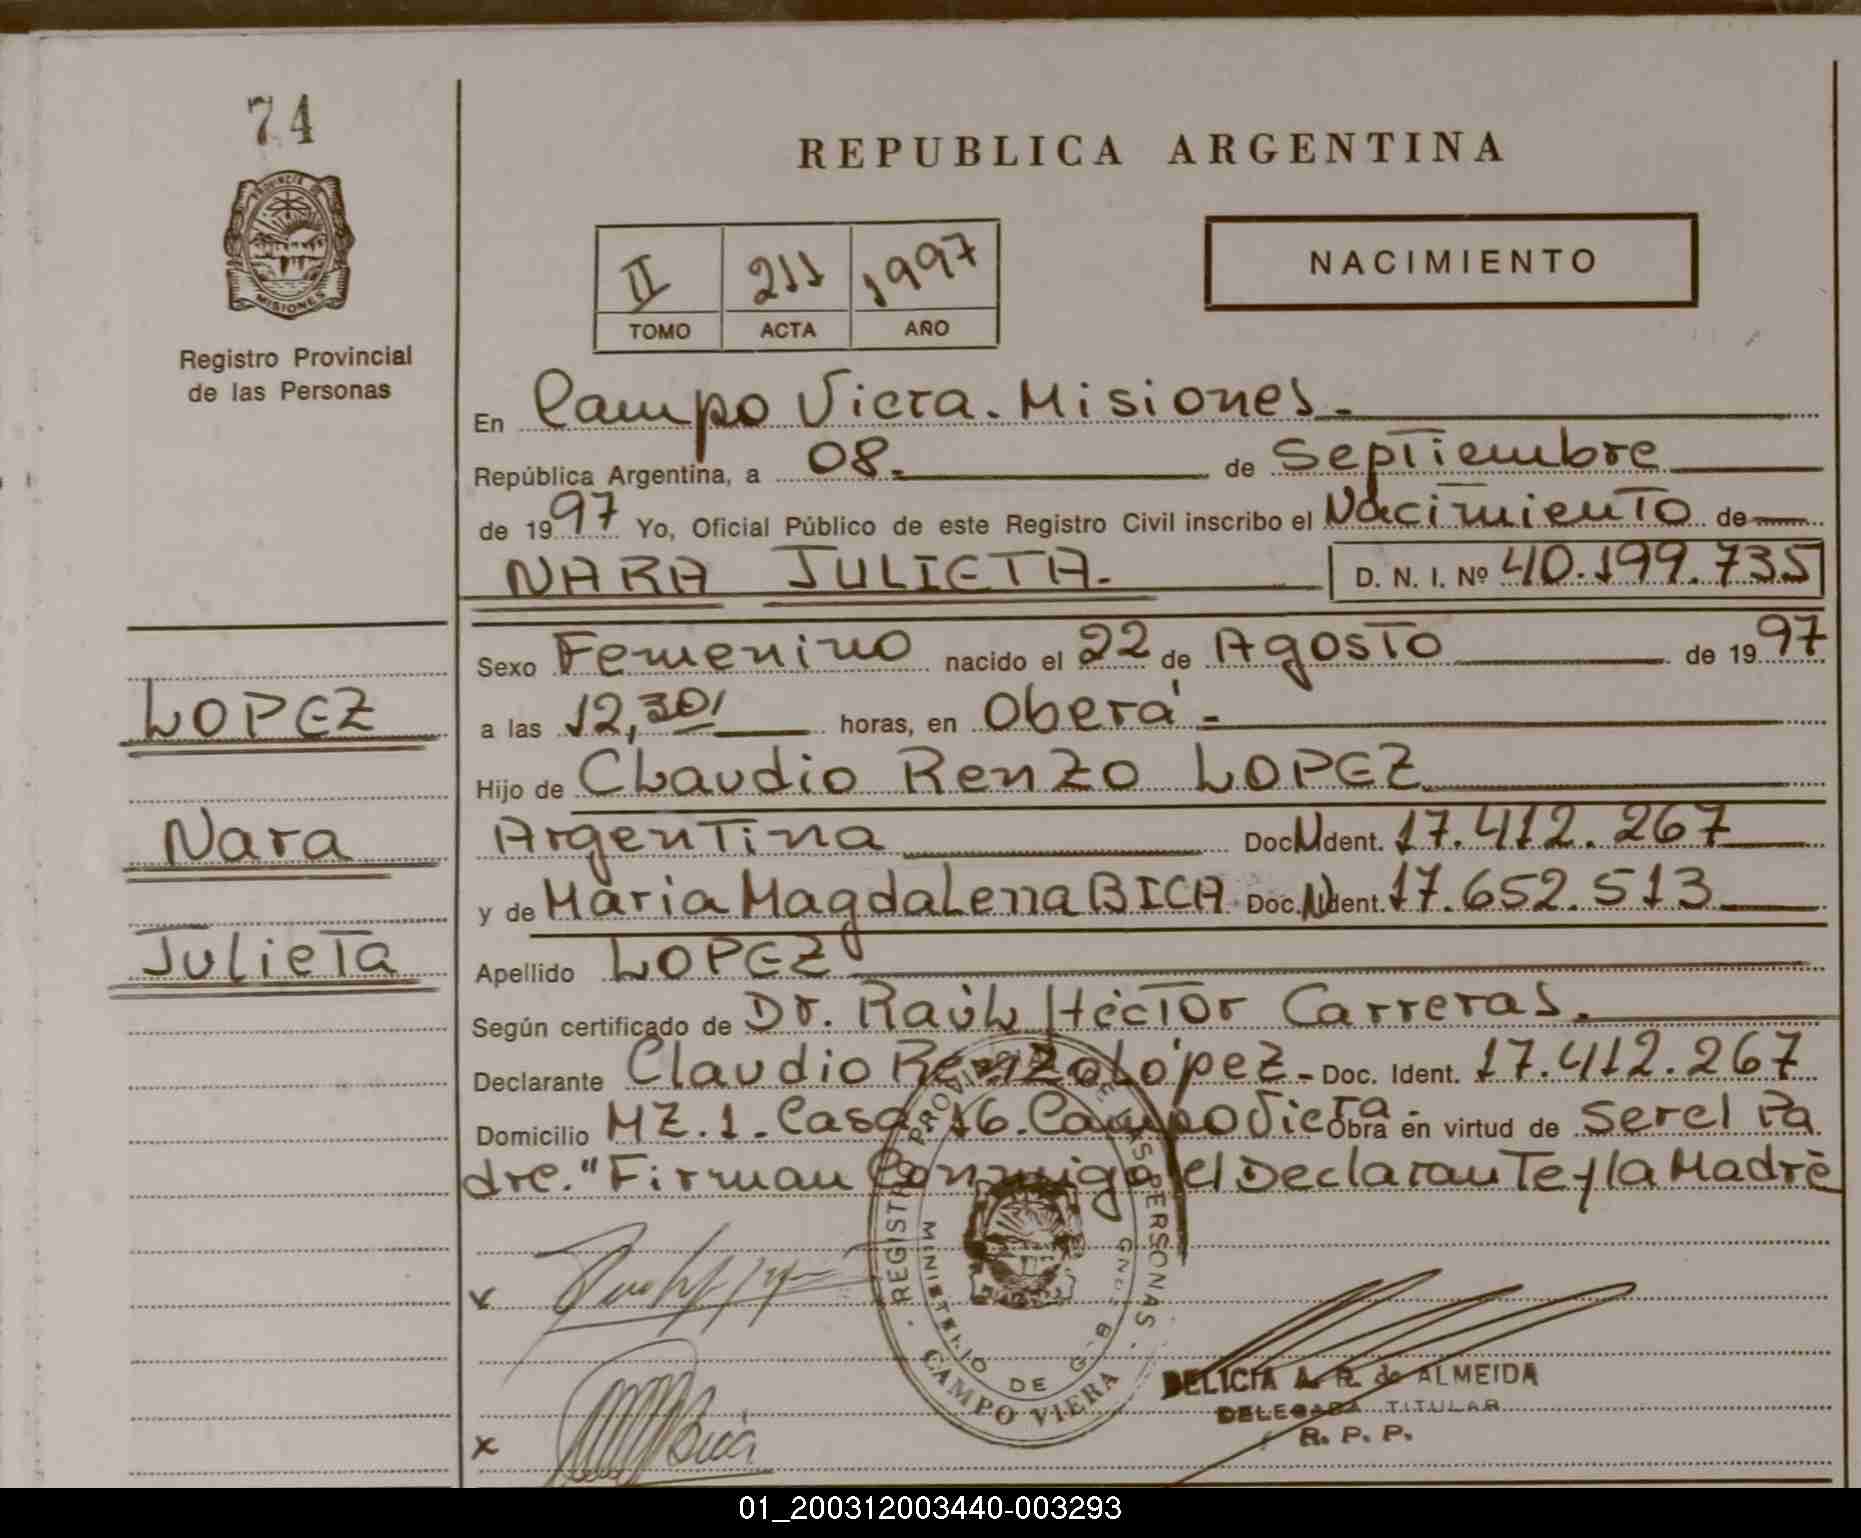 74
PROVINCIA DE
MISIONES
Registro Provincial
de las Personas
LOPEZ
Nara
Julieta
REPUBLICA ARGENTINA
II 211 1997
TOMO ACTA AÑO
NACIMIENTO
En Campo Viera. Misiones.
República Argentina, a 08. de Septiembre
de 1997 Yo, Oficial Público de este Registro Civil inscribo el Nacimiento de
NARA JULIETA. D. N. I. Nº 40.199.735
Sexo Femenino nacido el 22 de Agosto de 1997
a las 12,30 horas, en Oberá
Hijo de Claudio Renzo LOPEZ
Argentina Doc. Ident. 17.412.267
y de Maria Magdalena BICA Doc. Ident. 17.652.513
Apellido LOPEZ
Según certificado de Dr. Raúl Héctor Carreras.
Declarante Claudio Renzo López - Doc. Ident. 17.412.267
Domicilio MZ.1. Casa 16. Campo Viera. Obra en virtud de Ser el Pa
dre." Firman Conmigo el Declarante y la Madre
REGISTRO PROVINCIAL DE LAS PERSONAS
MINISTERIO DE GOB.
CAMPO VIERA
x
x Bica
DELICIA A. R. de ALMEIDA
DELEGADA TITULAR
R. P. P.
01_200312003440-003293